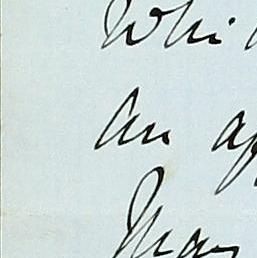 Whi
an ap
May